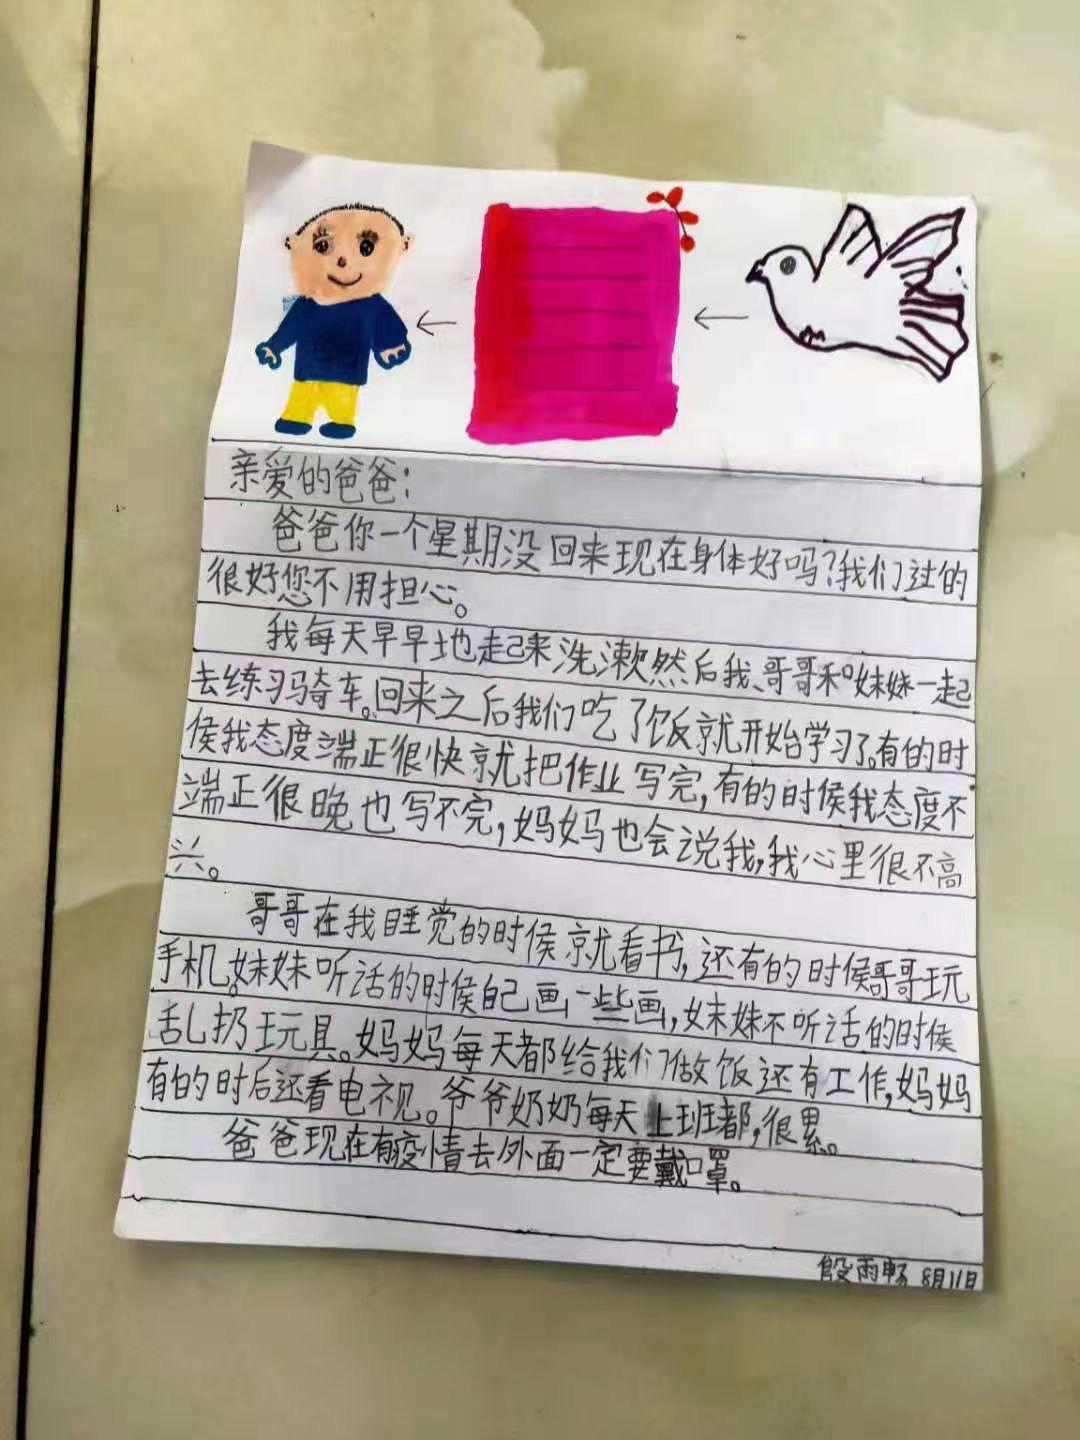 亲爱的爸爸：
爸爸你一个星期没回来现在身体好吗？我们过的
很好您不用担心。
我每天早早地起来洗漱然后我、哥哥和妹妹一起
去练习骑车。回来之后我们吃了饭就开始学习了。有的时
侯我态度端正很快就把作业写完，有的时侯我态度不
端正很晚也写不完，妈妈也会说我，我心里很不高
兴。
哥哥在我睡觉的时侯就看书，还有的时侯哥哥玩
手机。妹妹听话的时侯自己画一些画，妹妹不听话的时侯
乱扔玩具。妈妈每天都给我们做饭还有工作，妈妈
有的时后还看电视。爷爷奶奶每天上班都，很累。
爸爸现在有疫情去外面一定要戴口罩。
殷雨畅 8月11日